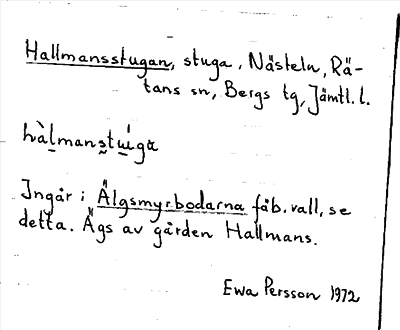 Hallmansstugan, stuga, Nästeln, Rä-
tans sn, Bergs tg, Jämtl. l.
hàl̠mans̠tu̠i̠ga
Ingår i Älgsmyrbodarna fäb.vall, se
detta. Ägs av gården Hallmans.
Ewa Persson 1972